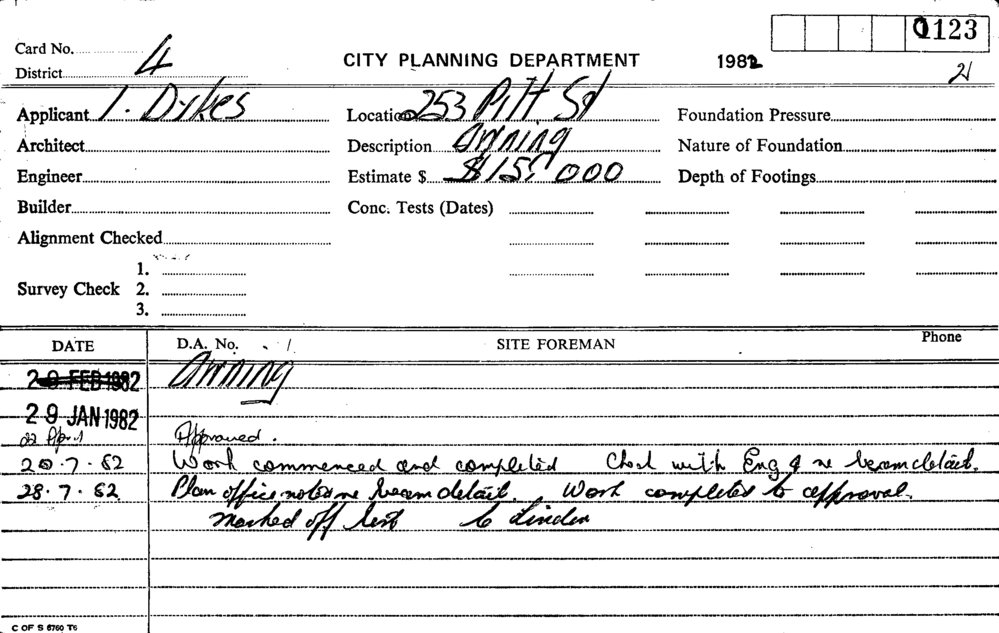 0123
Card No. 4 CITY PLANNING DEPARTMENT 1982
District 21
Applicant I. Dykes Location 253 Pitt St Foundation Pressure
Architect Description Awning Nature of Foundation
Engineer Estimate $ $15,000 Depth of Footings
Builder Conc. Tests (Dates)
Alignment Checked
1.
Survey Check 2.
3.
DATE D.A. No. SITE FOREMAN Phone
29 FEB 1982 Awning
29 JAN 1982
22 Apr. Approved.
20.7.82 Work commenced and completed Check with Eng re beam detail.
28.7.82 Plan office notes re beam detail. Work completed to approval.
Marked off list
C OF S 6760 T6